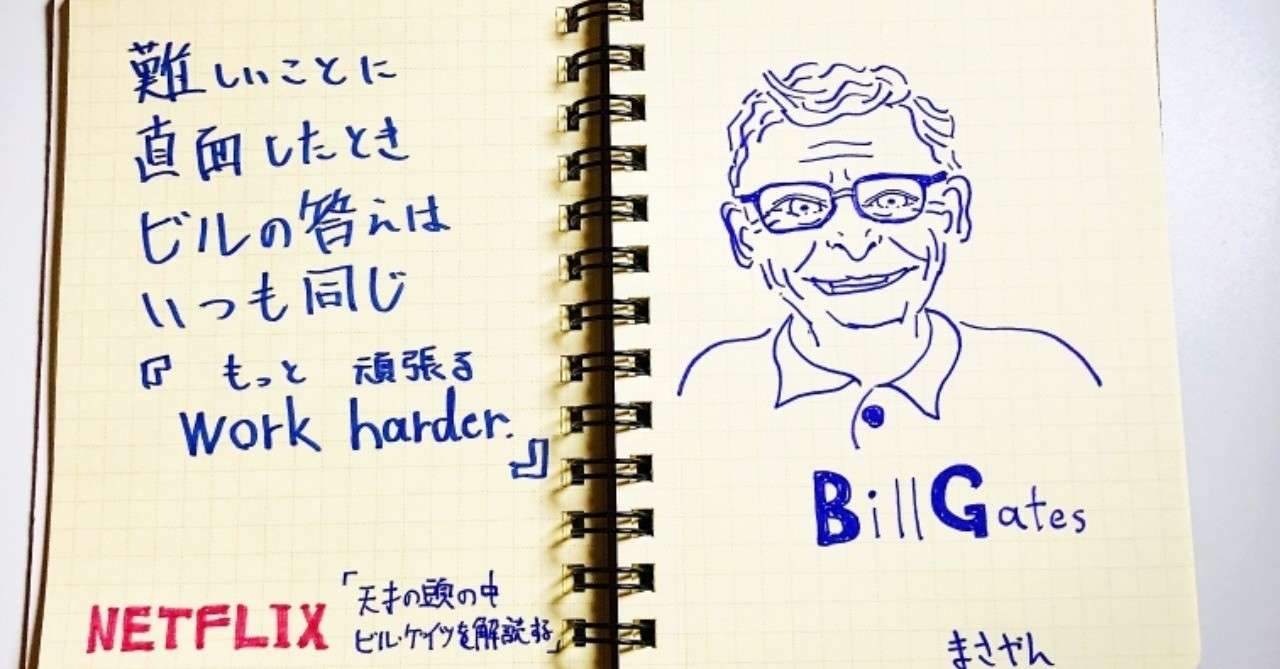 難しいことに
直面したとき
ビルの答えは
いつも同じ
『 もっと 頑張る
Work harder.
』
NETFLIX
「天才の頭の中
ビル・ゲイツを解読する」
Bill Gates
まさやん